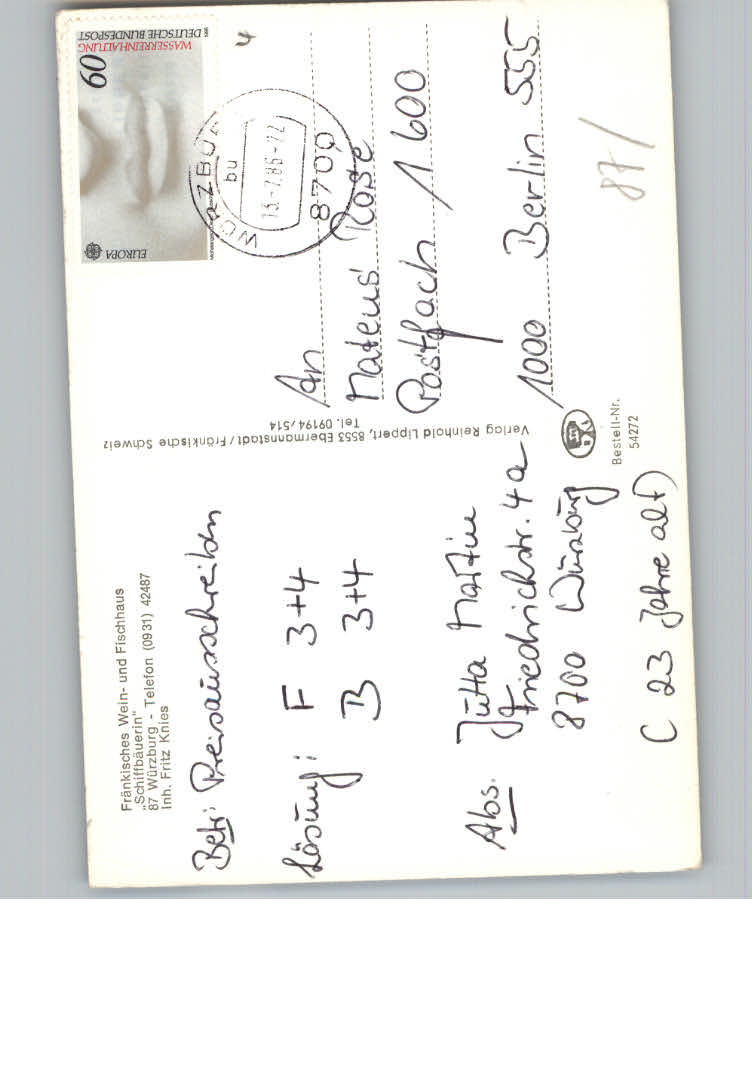 Fränkisches Wein- und Fischhaus
„Schiffbäuerin"
87 Würzburg - Telefon (0931) 42487
Inh. Fritz Knies
Betr: Preisausschreiben
Lösung: F 3+4
B 3+4
Abs. Jutta Martin
Friedrichstr. 4a
8700 Würzburg
( 23 Jahre alt)
Verlag Reinhold Lippert, 8553 Ebermannstadt/Fränkische Schweiz
Tel. 09194/514
Bestell-Nr.
54272
DEUTSCHE BUNDESPOST
WASSERREINHALTUNG
60
EUROPA
8700
bu
An
Mateus Rose
Postfach 1600
1000 Berlin 555
87/